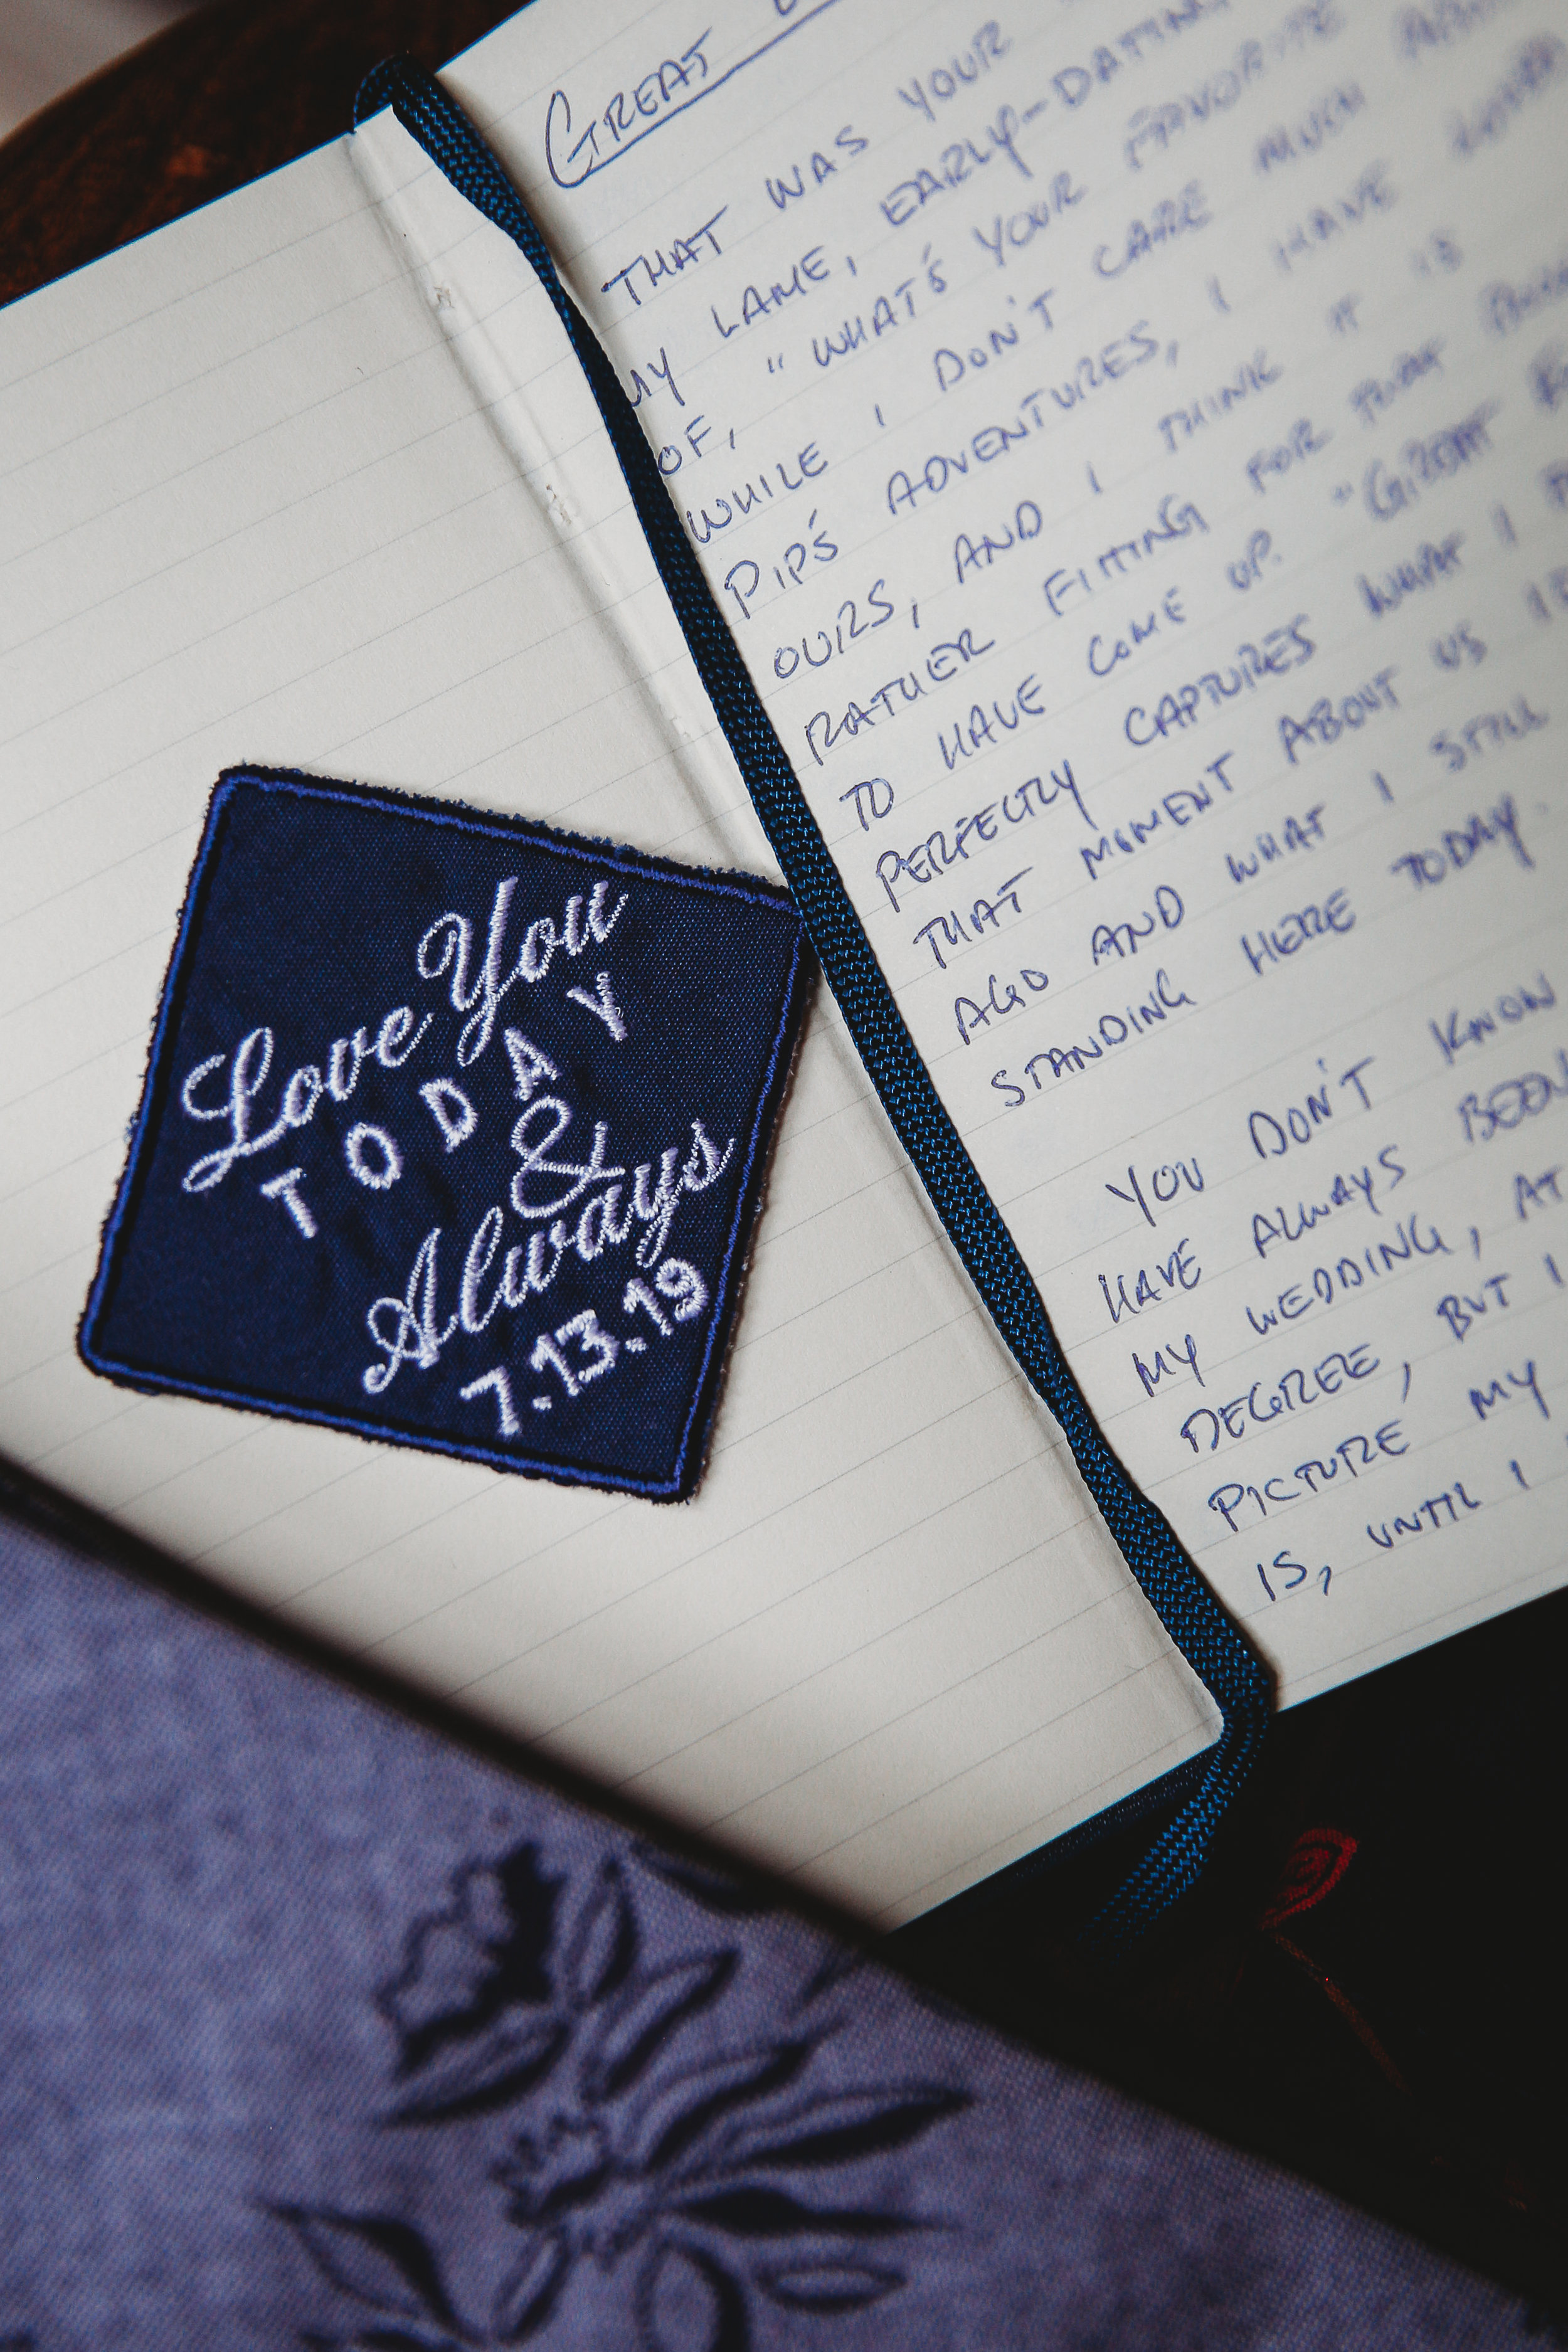 Love You
TODAY
&
Always
7.13.19
GREAT
THAT WAS YOUR
MY LAME, EARLY-DATING
OF, "WHAT'S YOUR FAVORITE
WHILE I DON'T CARE MUCH
PIP'S ADVENTURES, I HAVE LOVED
OURS, AND I THINK IT IS
RATHER FITTING FOR THAT
TO HAVE COME UP. "GREAT
PERFECTLY CAPTURES WHAT I
THAT MOMENT ABOUT US
AGO AND WHAT I STILL
STANDING HERE TODAY.
YOU DON'T KNOW
HAVE ALWAYS BEEN
MY WEDDING, AT
DEGREE, BUT I
PICTURE MY
IS, UNTIL I